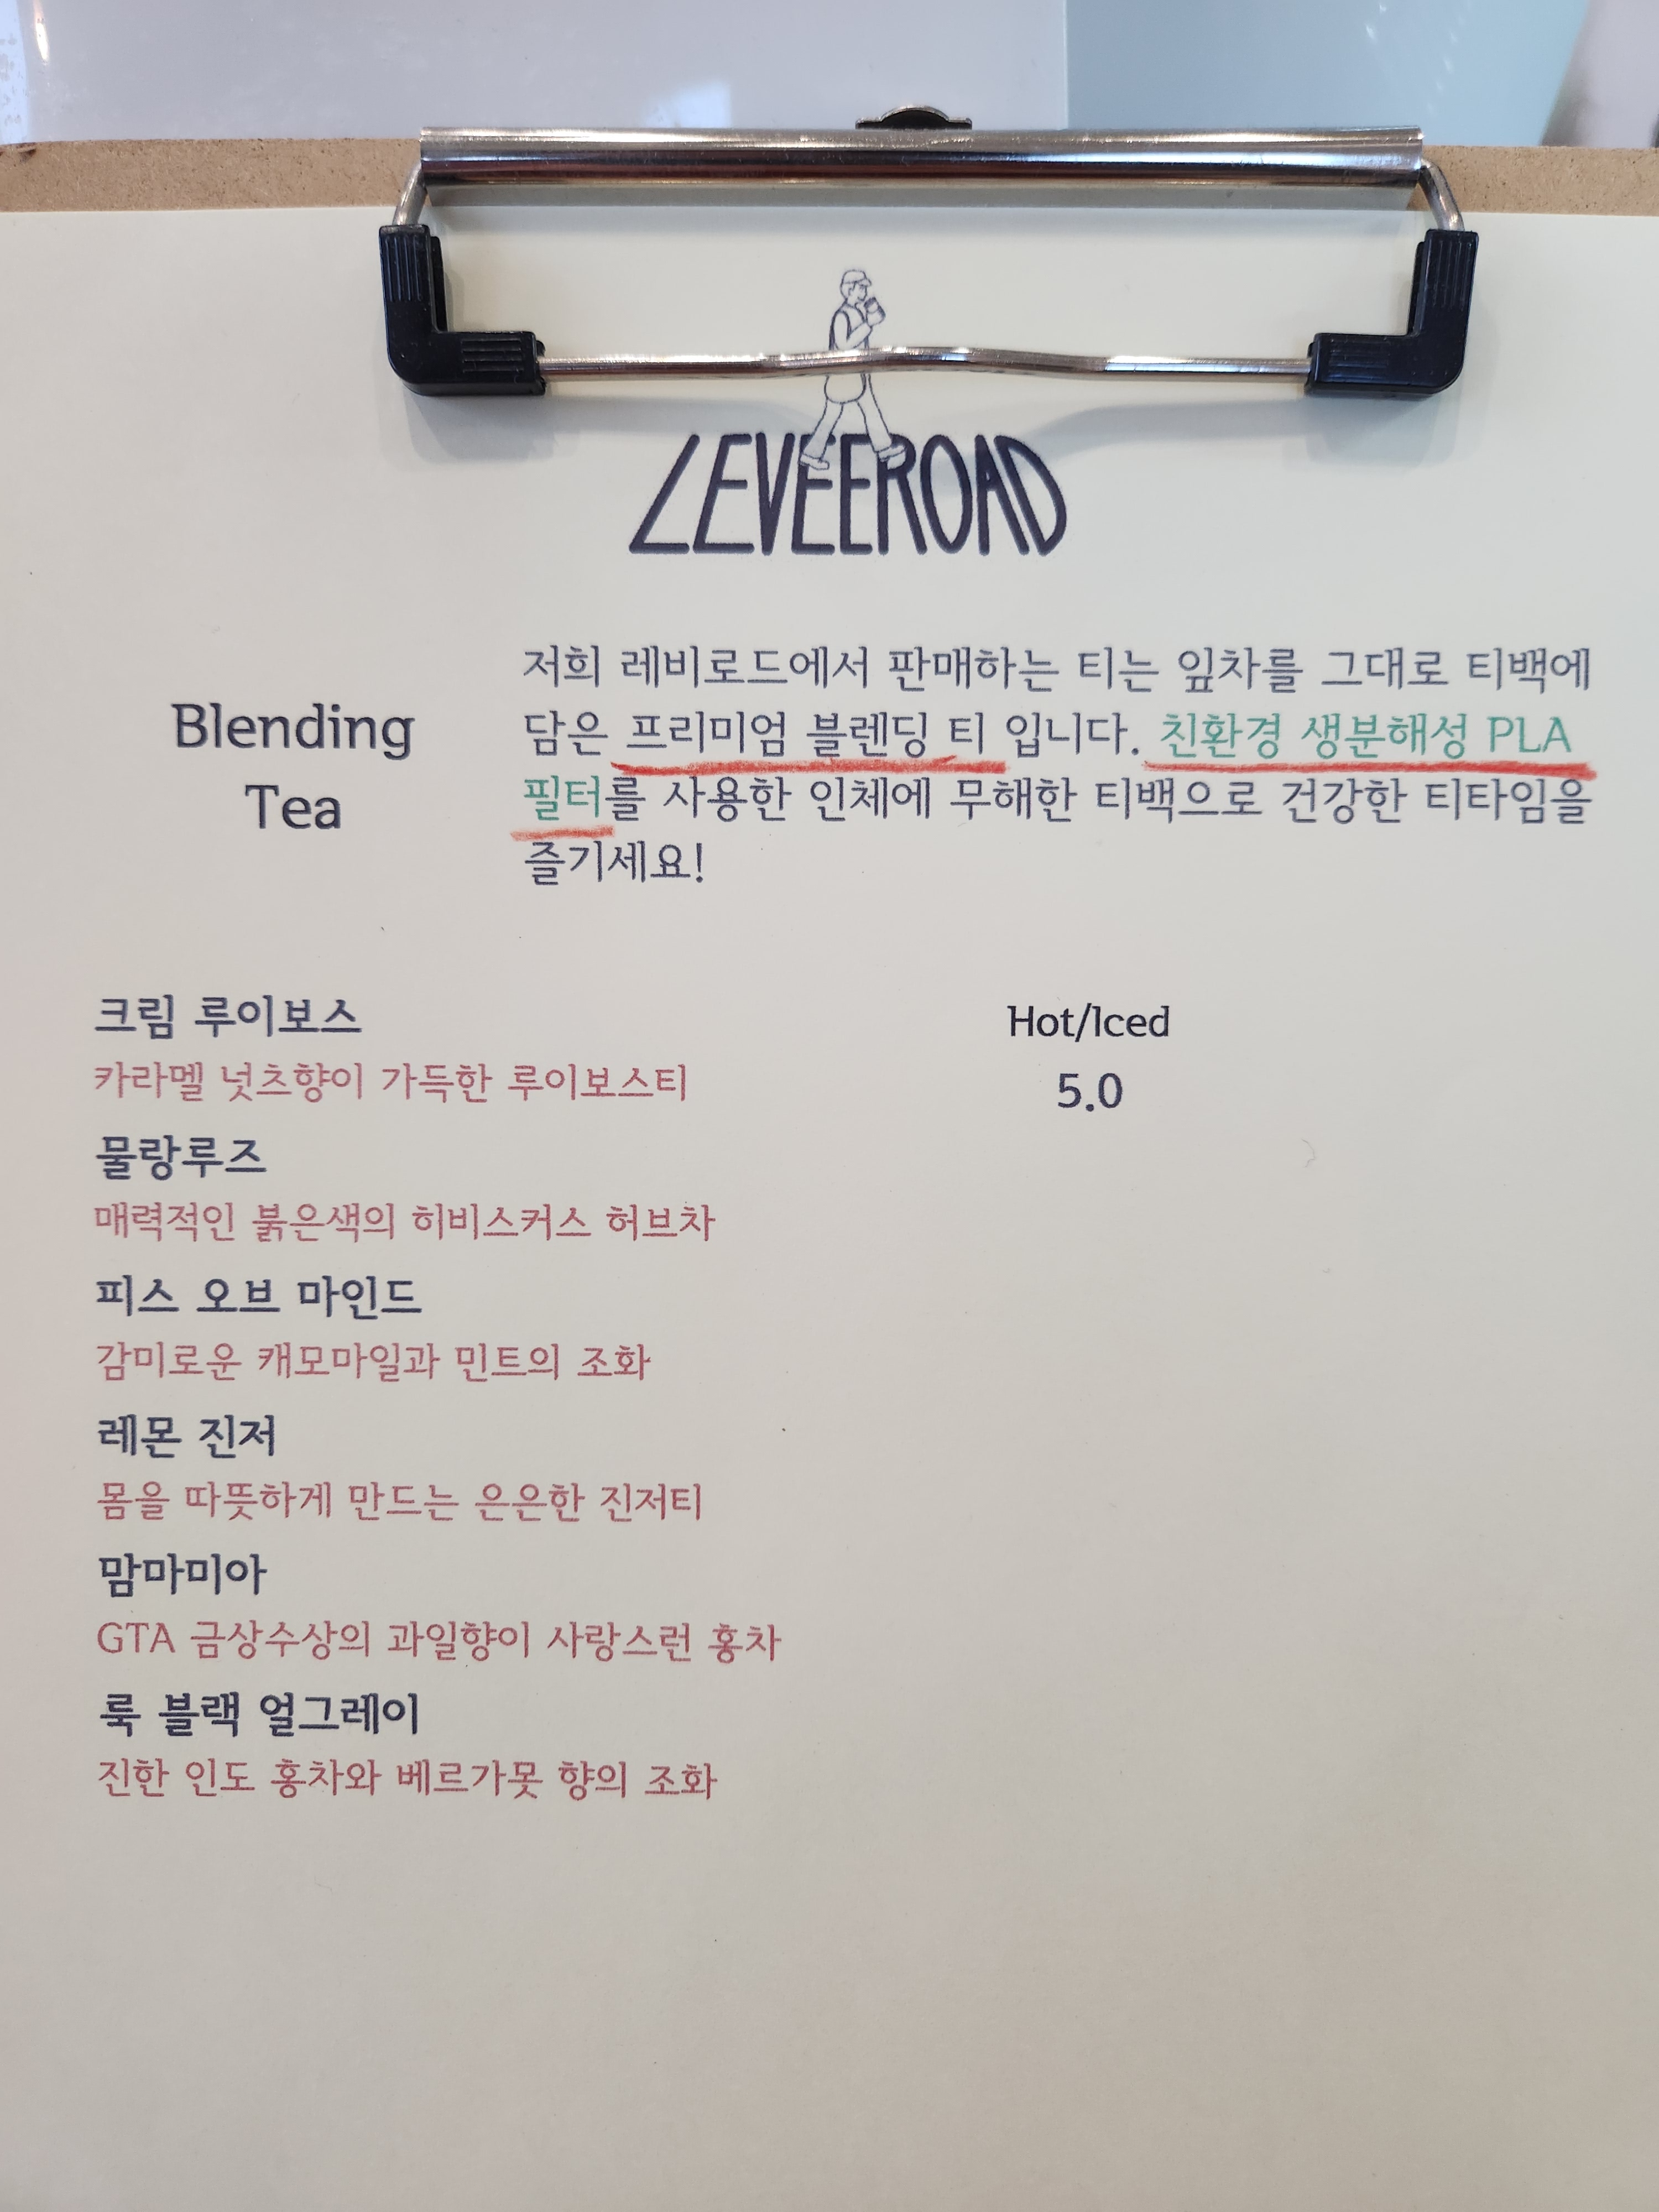 LEVEEROAD
Blending
Tea
저희 레비로드에서 판매하는 티는 잎차를 그대로 티백에
담은 프리미엄 블렌딩 티 입니다. 친환경 생분해성 PLA
필터를 사용한 인체에 무해한 티백으로 건강한 티타임을
즐기세요!
크림 루이보스
Hot/Iced
카라멜 넛츠향이 가득한 루이보스티
5.0
물랑루즈
매력적인 붉은색의 히비스커스 허브차
피스 오브 마인드
감미로운 캐모마일과 민트의 조화
레몬 진저
몸을 따뜻하게 만드는 은은한 진저티
맘마미아
GTA 금상수상의 과일향이 사랑스런 홍차
룩 블랙 얼그레이
진한 인도 홍차와 베르가못 향의 조화